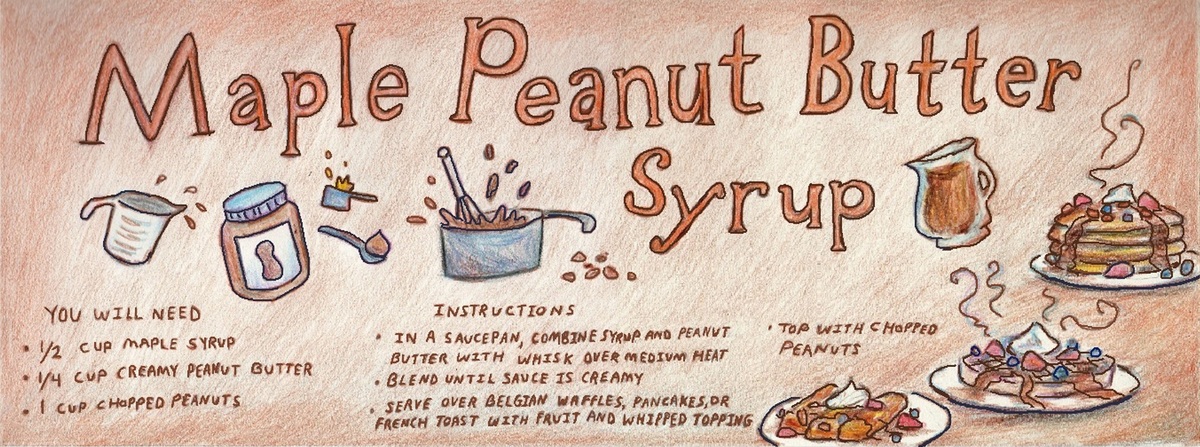 Maple Peanut Butter
Syrup
YOU WILL NEED
• 1/2 CUP MAPLE SYRUP
• 1/4 CUP CREAMY PEANUT BUTTER
• 1 CUP CHOPPED PEANUTS
INSTRUCTIONS
• IN A SAUCEPAN, COMBINE SYRUP AND PEANUT
BUTTER WITH WHISK OVER MEDIUM HEAT
• BLEND UNTIL SAUCE IS CREAMY
• SERVE OVER BELGIAN WAFFLES, PANCAKES, OR
FRENCH TOAST WITH FRUIT AND WHIPPED TOPPING
• TOP WITH CHOPPED
PEANUTS